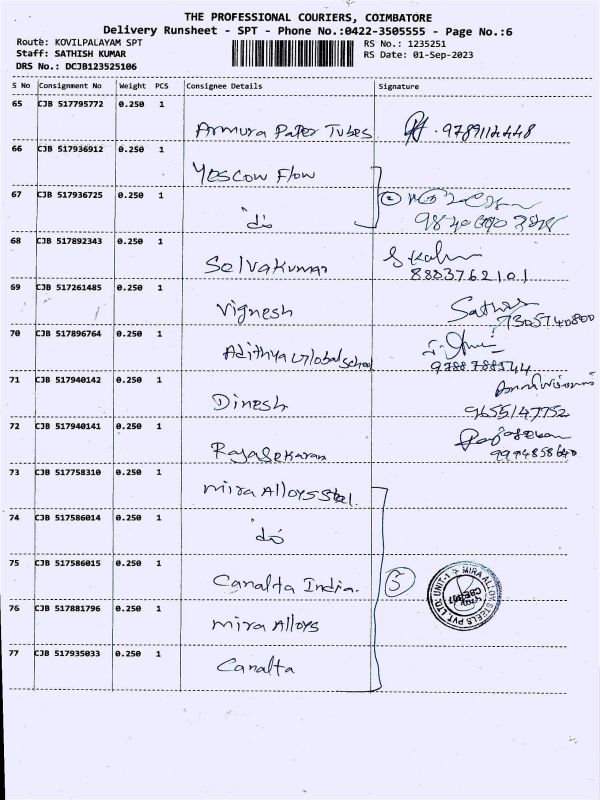 THE PROFESSIONAL COURIERS, COIMBATORE
Delivery Runsheet - SPT - Phone No.:0422-3505555 - Page No.:6
Route: KOVILPALAYAM SPT
RS No.: 1235251
Staff: SATHISH KUMAR
RS Date: 01-Sep-2023
DRS No.: DCJB123525106
S No Consignment No Weight PCS Consignee Details Signature
65 CJB 517795772 0.250 1
Armura Paper Tubes 9789114448
66 CJB 517936912 0.250 1
Yescow Flow
67 CJB 517936725 0.250 1
②
do
68 CJB 517892343 0.250 1
Selvakumar
8883762101
69 CJB 517261485 0.250 1
Vignesh
7305740800
70 CJB 517896764 0.250 1
Adithya Global School
9788788544
71 CJB 517940142 0.250 1
Dinesh
9655147752
72 CJB 517940141 0.250 1
Rajasekaran
9994858640
73 CJB 517758310 1
0.250
Mira Alloys Steel.
74 CJB 517586014 0.250 1
do
75 CJB 517586015 0.250 1
Canalta India. ⑤
MIRA ALLOY STEELS PVT. LTD. UNIT-1
76 CJB 517881796 0.250 1
Mira Alloys
77 CJB 517935033 0.250 1
Canalta